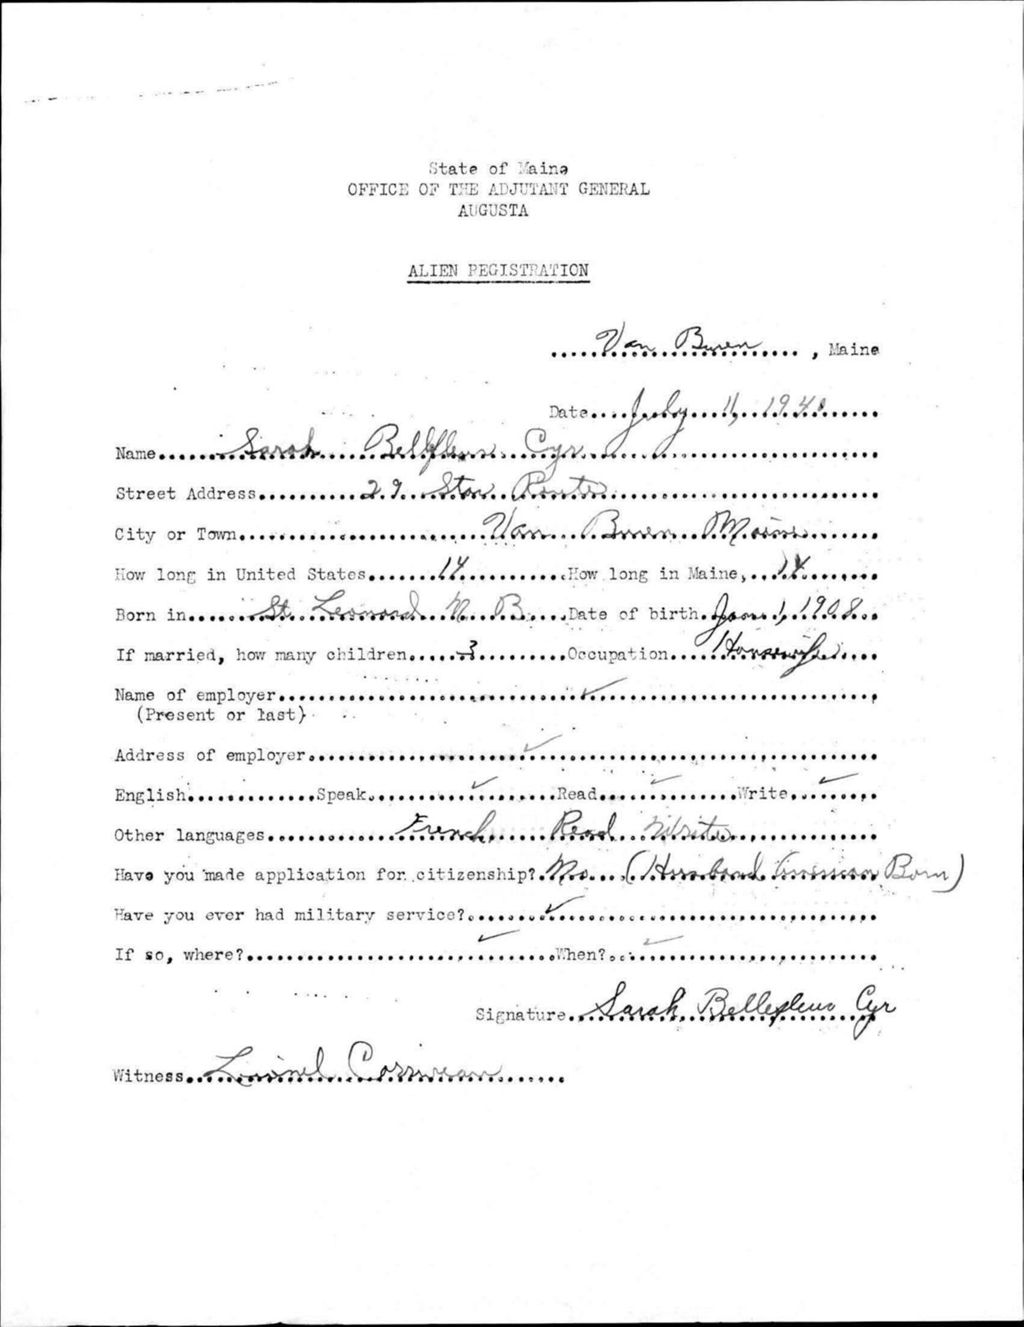 State of Maine
OFFICE OF THE ADJUTANT GENERAL
AUGUSTA
ALIEN REGISTRATION
Van Buren, Maine
Date July 11, 1940
Name Sarah Bellfleur Cyr
Street Address 29 Star Route
City or Town Van Buren Maine
How long in United States 14 How long in Maine, 14
Born in St. Leonard N. B. Date of birth Jan. 1, 1908
If married, how many children 3 Occupation Housewife
Name of employer ✓
(Present or last)
Address of employer ✓
English Speak ✓ Read ✓ Write ✓
Other languages French Read Write
Have you made application for citizenship? No (Husband American Born)
Have you ever had military service? ✓
If so, where? ✓ When? ✓
Signature Sarah Bellefleur Cyr
Witness Lionel